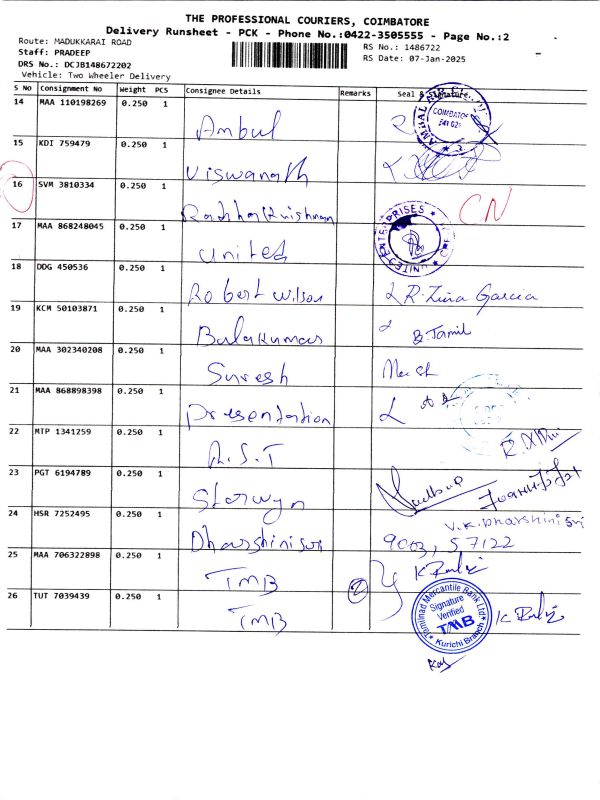 THE PROFESSIONAL COURIERS, COIMBATORE
Delivery Runsheet - PCK - Phone No.:0422-3505555 - Page No.:2
Route: MADUKKARAI ROAD
RS No.: 1486722
Staff: PRADEEP
RS Date: 07-Jan-2025
DRS No.: DCJB148672202
Vehicle: Two Wheeler Delivery
S No Consignment No Weight PCS Consignee Details Remarks Seal & Signature
14 MAA 110198269 0.250 1 Ambul
COIMBATORE
15 KDI 759479 0.250 1 Viswanath
16 SVM 3810334 0.250 1 Radhakrishnan CN
17 MAA 868248045 0.250 1 United
UNITED ENTERPRISES
18 DDG 450536 0.250 1 Robert Wilson R. Zina Garcia
19 KCM 50103871 0.250 1 Balakumar B. Tamil
20 MAA 302340208 0.250 1 Suresh
21 MAA 868898398 0.250 1 Presentation
22 MTP 1341259 0.250 1 R.S.T
23 PGT 6194789 0.250 1 Starwyn
24 HSR 7252495 0.250 1 Dharshinisri V.K.Dharshini Sri
9003, 57122
25 MAA 706322898 0.250 1 TMB 2
26 TUT 7039439 0.250 1 TMB
Tamilnad Mercantile Bank Ltd
Signature
Verified
TMB
Kurichi Branch